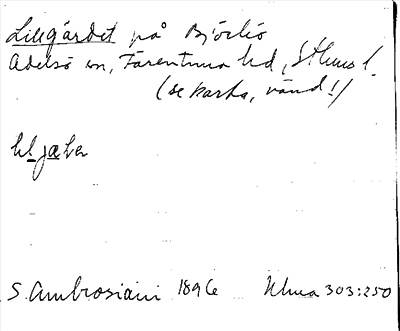 Lillgärdet på Björkö
Adelsö sn, Färentuna hd, Sthms l.
(se karta, vänd!)
S. Ambrosiani 1896 Ulma 303:250